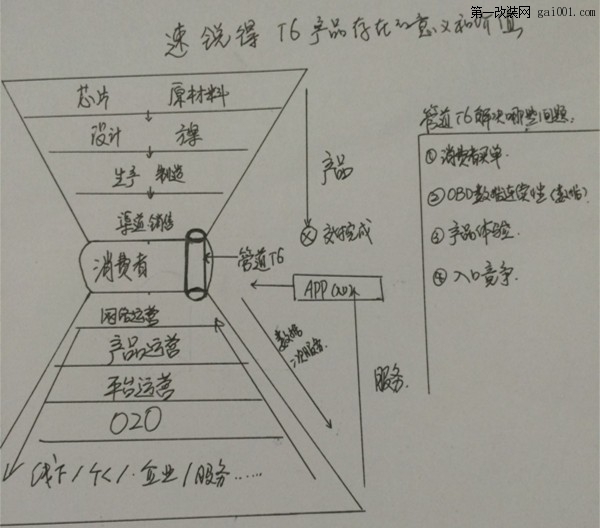 第一改装网 gai001.com
速锐得 T6产品存在的意义和价值
芯片 原材料
设计 方案
生产 制造
渠道 销售
消费者
管道T6
网络运营
产品运营
平台运营
O2O
线下/个人·企业/服务……
产品
交付完成
APP
数据
二次服务
服务
管道T6解决哪些问题:
①消费者买单.
②OBD数据连续性(数据)
③产品体验.
④入口竞争.